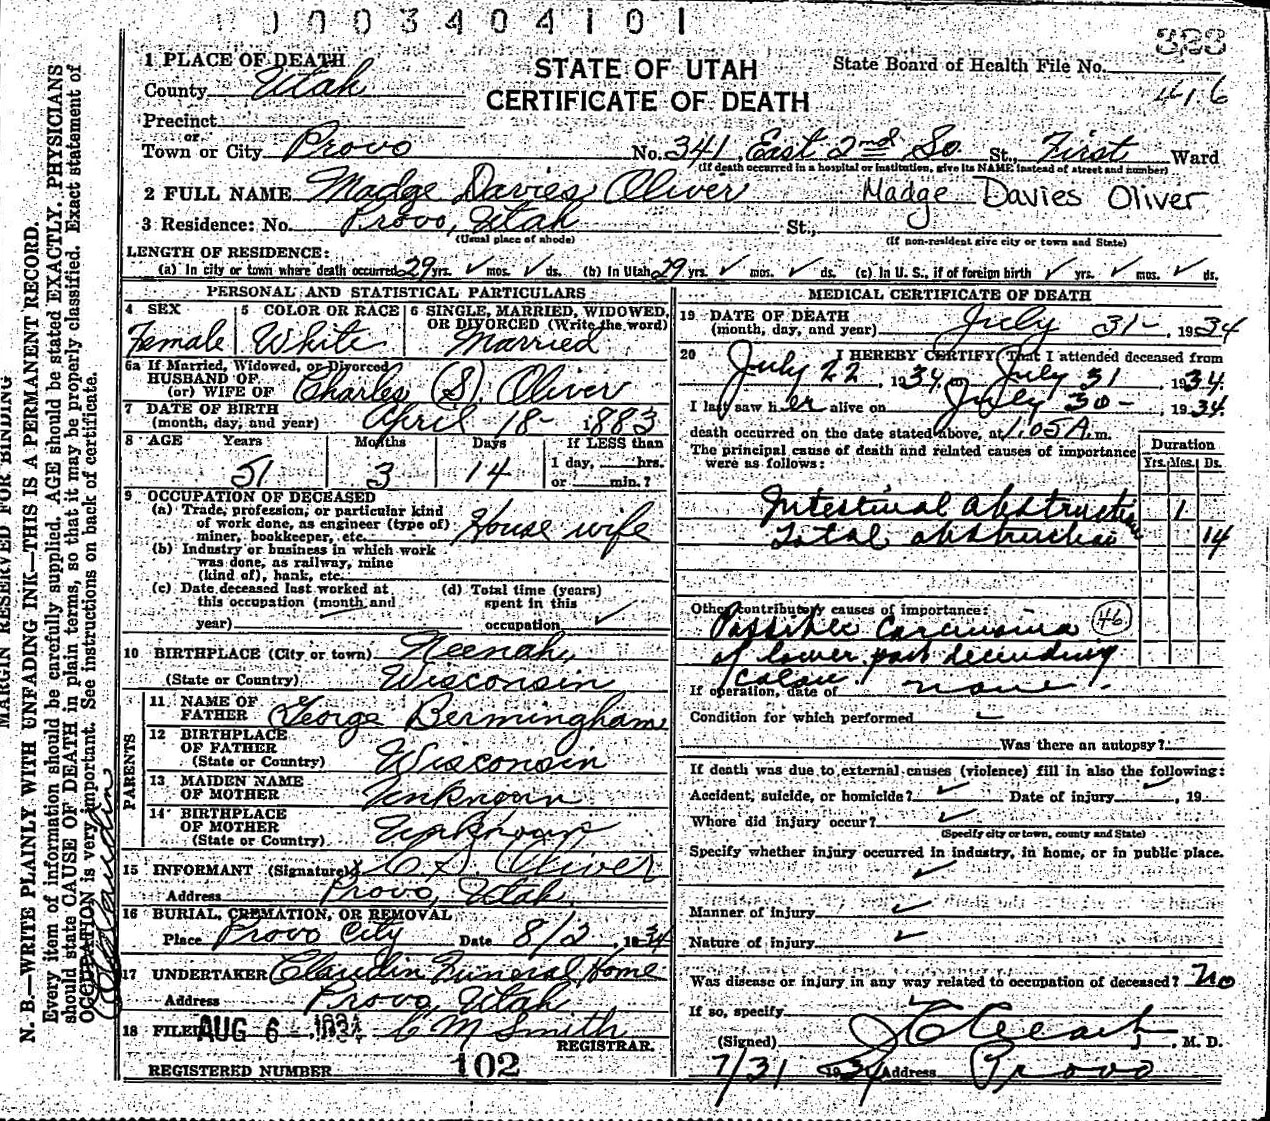 0003404101
323
STATE OF UTAH
CERTIFICATE OF DEATH
State Board of Health File No.
416
1 PLACE OF DEATH
County Utah
Precinct
or
Town or City Provo No. 341 East 2nd So St., First Ward
(If death occurred in a hospital or institution, give its NAME instead of street and number)
2 FULL NAME Madge Davies Oliver Madge Davies Oliver
3 Residence: No. Provo, Utah St.,
(Usual place of abode) (If non-resident give city or town and State)
LENGTH OF RESIDENCE:
(a) In city or town where death occurred 29 yrs. ✓ mos. ✓ ds. (b) In Utah 29 yrs. ✓ mos. ✓ ds. (c) In U. S., if of foreign birth ✓ yrs. ✓ mos. ✓ ds.
PERSONAL AND STATISTICAL PARTICULARS
4 SEX 5 COLOR OR RACE 6 SINGLE, MARRIED, WIDOWED,
OR DIVORCED (Write the word)
Female White Married
6a If Married, Widowed, or Divorced
HUSBAND OF
(or) WIFE OF Charles (S). Oliver
7 DATE OF BIRTH
(month, day, and year) April 18- 1883
8 AGE Years Months Days If LESS than
51 3 14 1 day, hrs.
or min.?
9 OCCUPATION OF DECEASED
(a) Trade, profession, or particular kind
of work done, as engineer (type of)
miner, bookkeeper, etc. House wife
(b) Industry or business in which work
was done, as railway, mine
(kind of), bank, etc.
(c) Date deceased last worked at (d) Total time (years)
this occupation (month and spent in this
year) occupation ✓
10 BIRTHPLACE (City or town) Neenah,
(State or Country) Wisconsin
PARENTS
11 NAME OF
FATHER George Bermingham
12 BIRTHPLACE
OF FATHER
(State or Country) Wisconsin
13 MAIDEN NAME
OF MOTHER Unknown
14 BIRTHPLACE
OF MOTHER
(State or Country) Unknown
15 INFORMANT (Signature) C S. Oliver
Address Provo, Utah
16 BURIAL, CREMATION, OR REMOVAL
Place Provo City Date 8/2, 1934
17 UNDERTAKER Claudin Funeral Home
Address Provo, Utah
18 FILED AUG 6 - 1934 C M Smith
REGISTRAR.
REGISTERED NUMBER 102
MEDICAL CERTIFICATE OF DEATH
19 DATE OF DEATH
(month, day, and year) July 31- 1934
20 I HEREBY CERTIFY, That I attended deceased from
July 22, 1934, to July 31, 1934.
I last saw her alive on July 30-, 1934.
death occurred on the date stated above, at 1:05 A.m.
The principal cause of death and related causes of importance
were as follows:
Duration
Yrs. Mos. Ds.
Intestinal obstruction 1
Total obstruction 14
Other contributory causes of importance:
Possible Carcinoma 46
of lower part decending
colon
If operation, date of none.
Condition for which performed –
Was there an autopsy?
If death was due to external causes (violence) fill in also the following:
Accident, suicide, or homicide? ✓ Date of injury ✓, 19
Where did injury occur? ✓
(Specify city or town, county and State)
Specify whether injury occurred in industry, in home, or in public place.
✓
Manner of injury ✓
Nature of injury ✓
Was disease or injury in any way related to occupation of deceased? No
If so, specify
(Signed) , M. D.
7/31 1934 Address Provo
MARGIN RESERVED FOR BINDING
N. B.—WRITE PLAINLY WITH UNFADING INK—THIS IS A PERMANENT RECORD.
Every item of information should be carefully supplied. AGE should be stated EXACTLY. PHYSICIANS
should state CAUSE OF DEATH in plain terms, so that it may be properly classified. Exact statement of
OCCUPATION is very important. See instructions on back of certificate.
Claudin